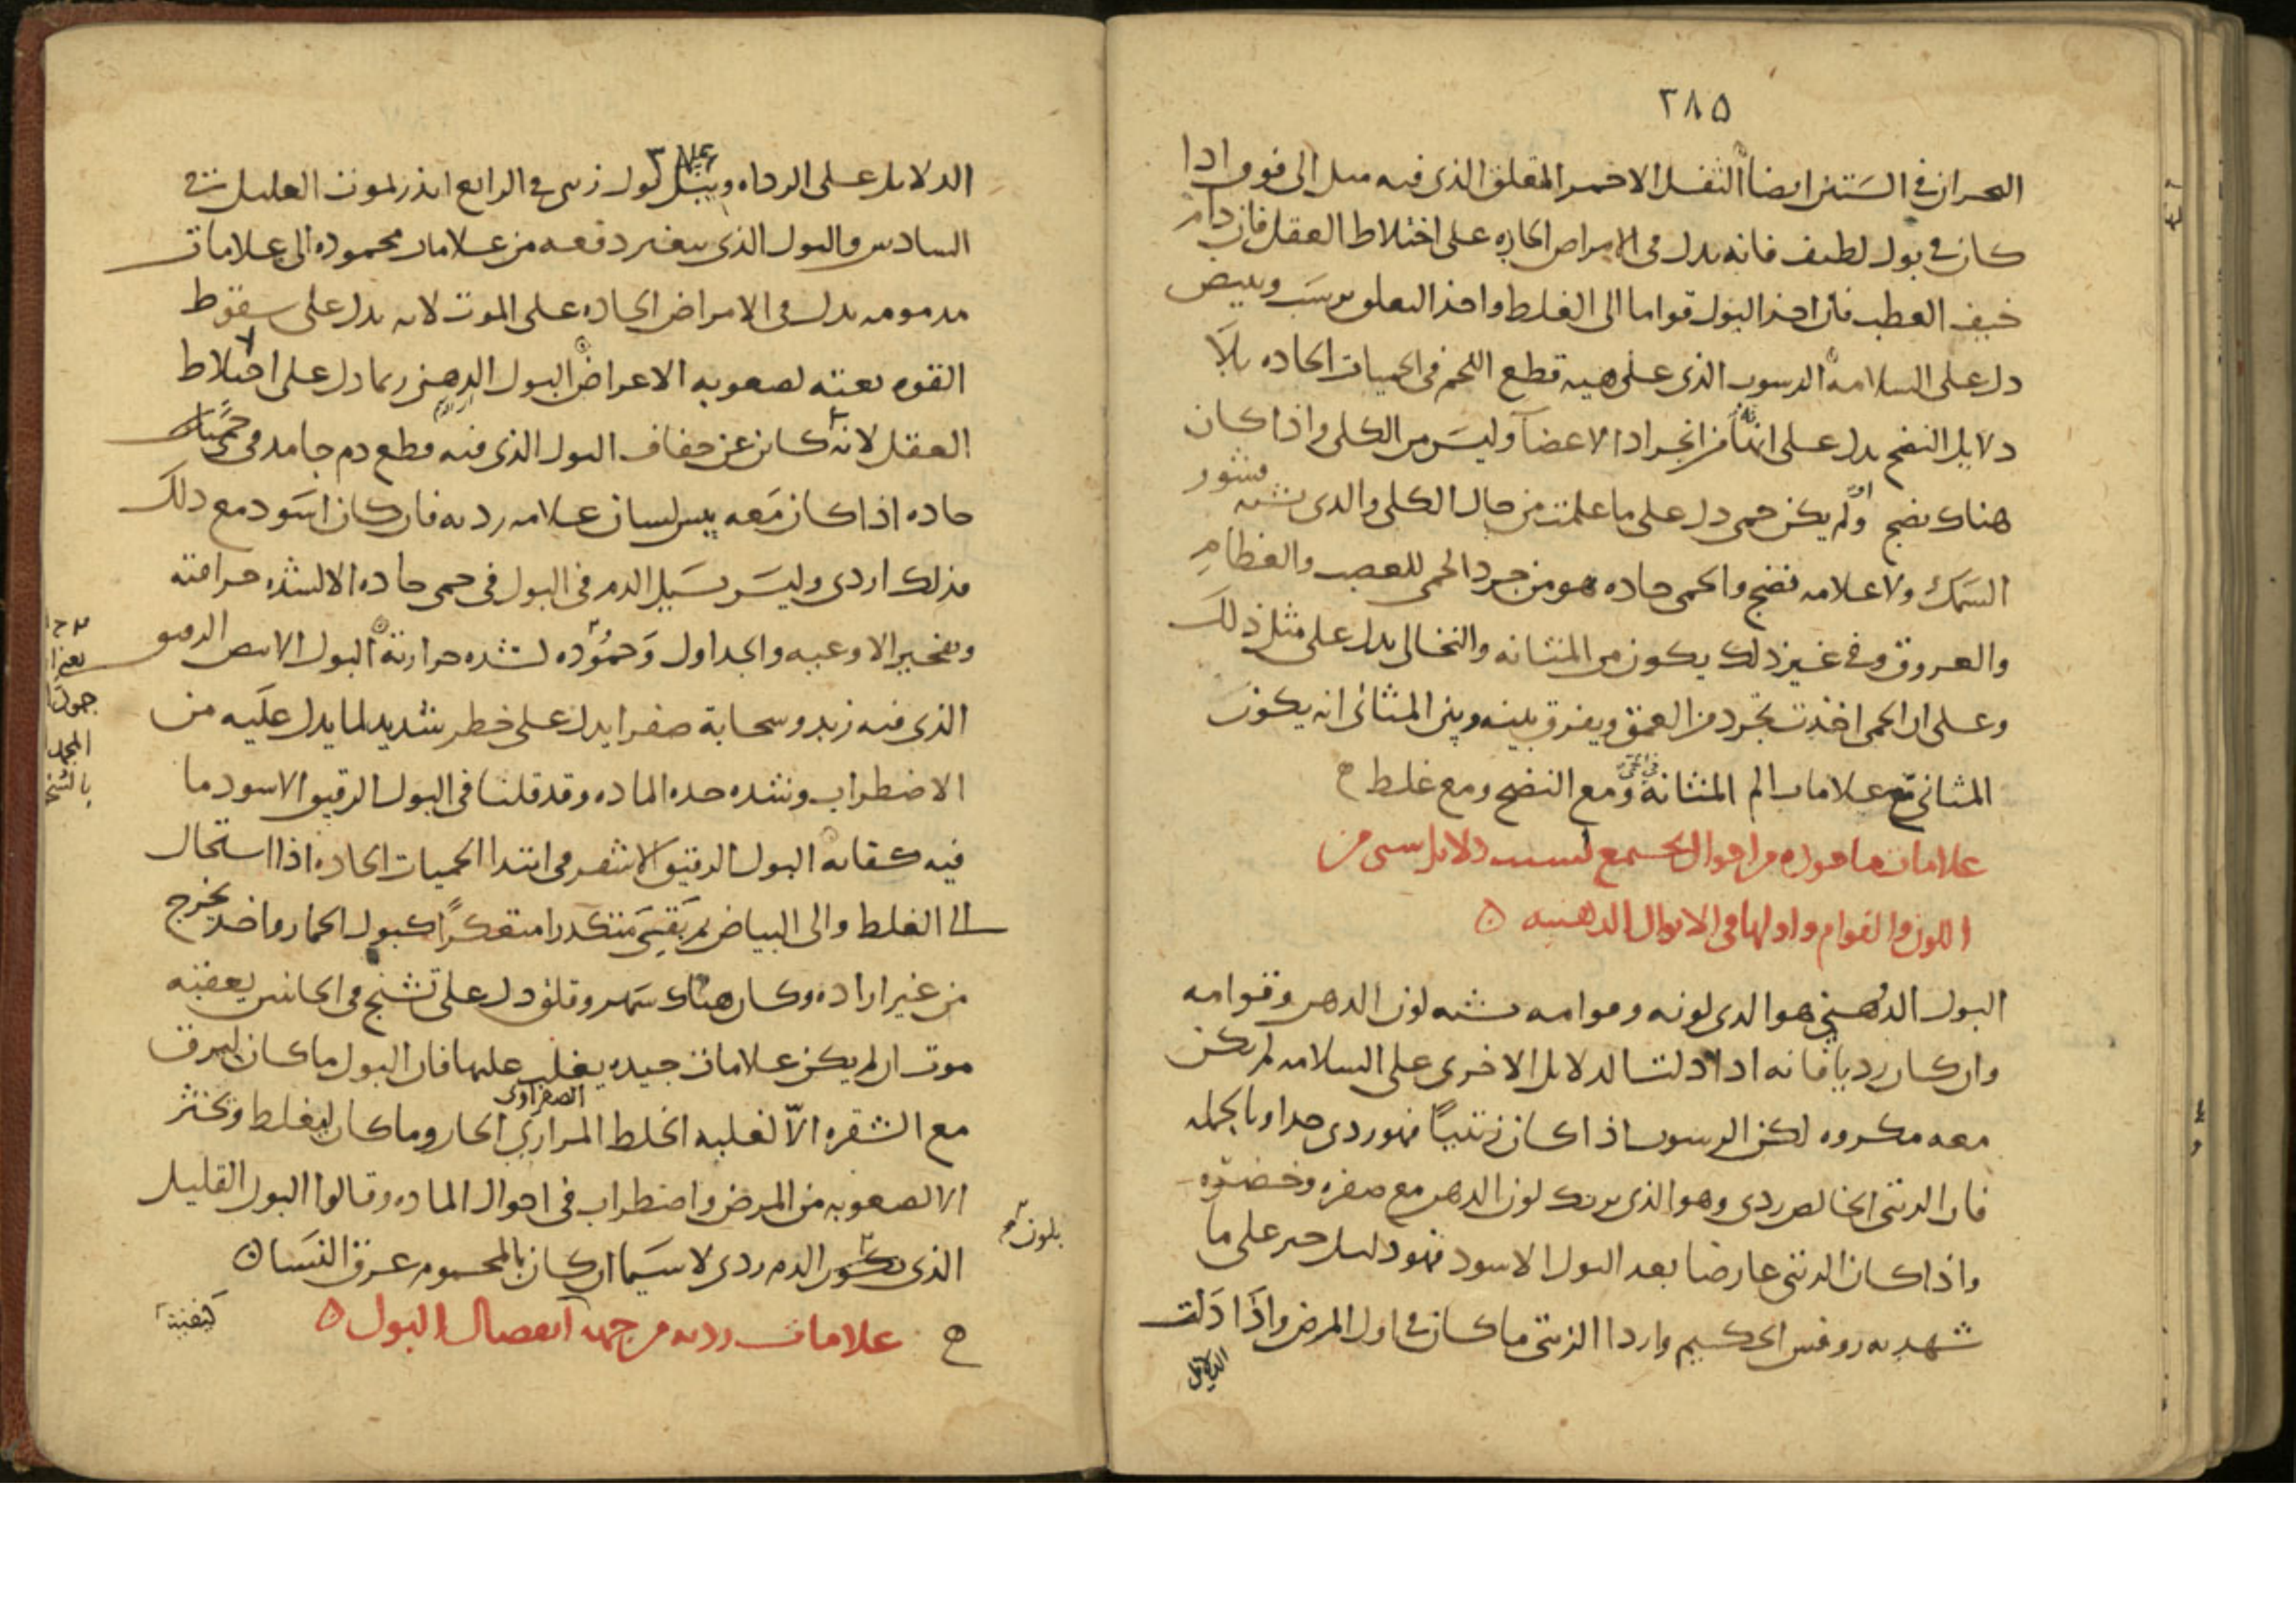 ٢٨٥
البحران في الستين ايضا الثفل الاحمر المتعلق الذي فيه ميل الى فوق اذا
كان في بول لطيف فانه يدل في الامراض الحاده على اختلاط العقل فان دام
خيف العطب فان اخذ البول قواما الى الغلظ واخذ التعلق يرسب ويبيض
دل على السلامه الرسوب الذي على هيه قطع اللحم في الحميات الحاده بلا
دلايل النضج يدل على انها من انجراد الاعضآ وليس من الكلى واذا كان
هناك نضج او لم يكن حمى دل على ما علمت من حال الكلى والذي يشبه قشور
السمك ولا علامه نضج والحمى حاده هو من جرد الحمى للعصب والعظام
والعروق وفي غير ذلك يكون من المثانه والنخالي يدل على مثل ذلك
وعلى ان الحمى اخذت تجرد من العمق ويفرق بينه وبين المثاني انه يكون
المثاني مع علامات الم المثانه ومع النضج ومع غلظ
علامات ماخوده من احوال يجتمع دلايل شتى من
اللون والقوام واولها في الابوال الدهنيه
البول الدهني هو الذي لونه وقوامه يشبه لون الدهن وقوامه
وان كان رديا فانه اذا دلت الدلايل الاخرى على السلامه لم يكن
معه مكروه لكن الرسوب اذا كان زيتيا فهو ردي جدا وبالجمله
فان الزيتي الخالص ردي وهو الذي يريك لون الدهن مع صفره وخضره
واذا كان الزيتي عارضا بعد البول الاسود فهو دليل خير على ما
شهد به روفس الحكيم واردا الزيتي ما كان في اول المرض واذا دلت
الدلايل
الدلايل على الرداه وبيل بول زيتي في الرابع انذر بموت العليل في
السادس والبول الذي يتغير دفعه من علامات محموده الى علامات
مذمومه يدل في الامراض الحاده على الموت لانه يدل على سقوط
القوه بغته لصعوبه الاعراض البول الدهني ربما دل على اختلاط
العقل لانه كان عن جفاف البول الذي فيه قطع دم جامد في حميات
حاده اذا كان معه يبس لسان علامه رديه فان كان اسود مع ذلك
فذلك اردى وليس يسيل الدم في البول في حمى حاده الا لشده حرافته
وتفجير الاوعيه والجداول وجموده لشده حرارته البول الابيض الرقيق
الذي فيه زبد وسحابة صفرا يدل على خطر شديد لما يدل عليه من
الاضطراب وشده حده الماده وقد قلنا في البول الرقيق الاسود ما
فيه كفايه البول الرقيق الاشقر في ابتدا الحميات الحاده اذا استحال
الى الغلظ والى البياض ثم بقي متكدرا متعكرا كبول الحمار واخذ يخرج
من غير اراده وكان هناك سهر وقلق دل على تشنج في الجانبين يعقبه
موت ان لم يكن علامات جيده يغلب عليها فان البول ما كان ليرق
الصفراوي
مع الشقره الا لغلبه الخلط المراري الحار وما كان ليغلظ ويخثر
الا لصعوبه من المرض واضطراب في احوال الماده وقالوا البول القليل
بلون
الذي بلون الدم ردي لا سيما ان كان بالمحموم عرق النسا
علامات رديه من جهه انفصال البول
كيفية